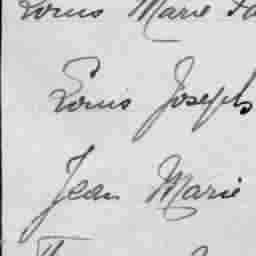 Louis Marie
Louis Joseph
Jean Marie